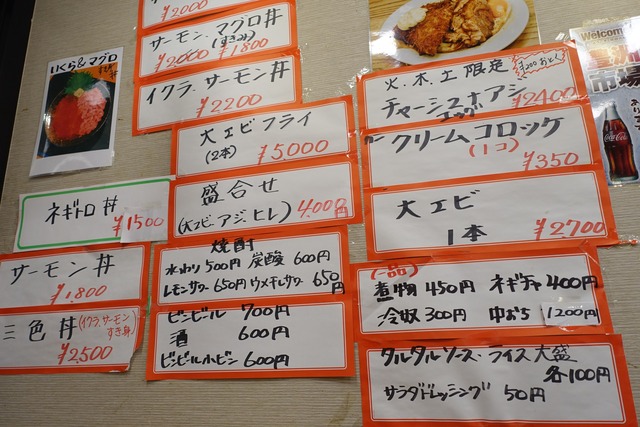 ¥2000
サーモン.マグロ丼
(すきみ)
¥2000 ¥1800
イクラ.サーモン丼
¥2200
いくら&マグロ
ネギトロ丼
¥1500
サーモン丼
¥1,800
三色丼(イクラ.サーモン
すき身)
¥2,500
大エビフライ
(2本)
¥5,000
盛合せ
(大エビ・アジ・ヒレ) 4000円
焼酎
水わり 500円 炭酸 600円
レモンサワー 650円 ウメキムサワー 650円
ビンビール 700円
酒 600円
ビンビール小ビン 600円
火.木.土限定
¥200あと
チャーシューアシ
エッグ ¥2400
クリームコロッケ
(1コ)
¥350
大エビ
1本
¥2700
(一品)
煮物 450円 ネギチャ 400円
冷奴 300円 中おち 1200円
タルタルソース.ライス大盛
各100円
サラダドレッシング 50円
Welcome
市場
Coca-Cola